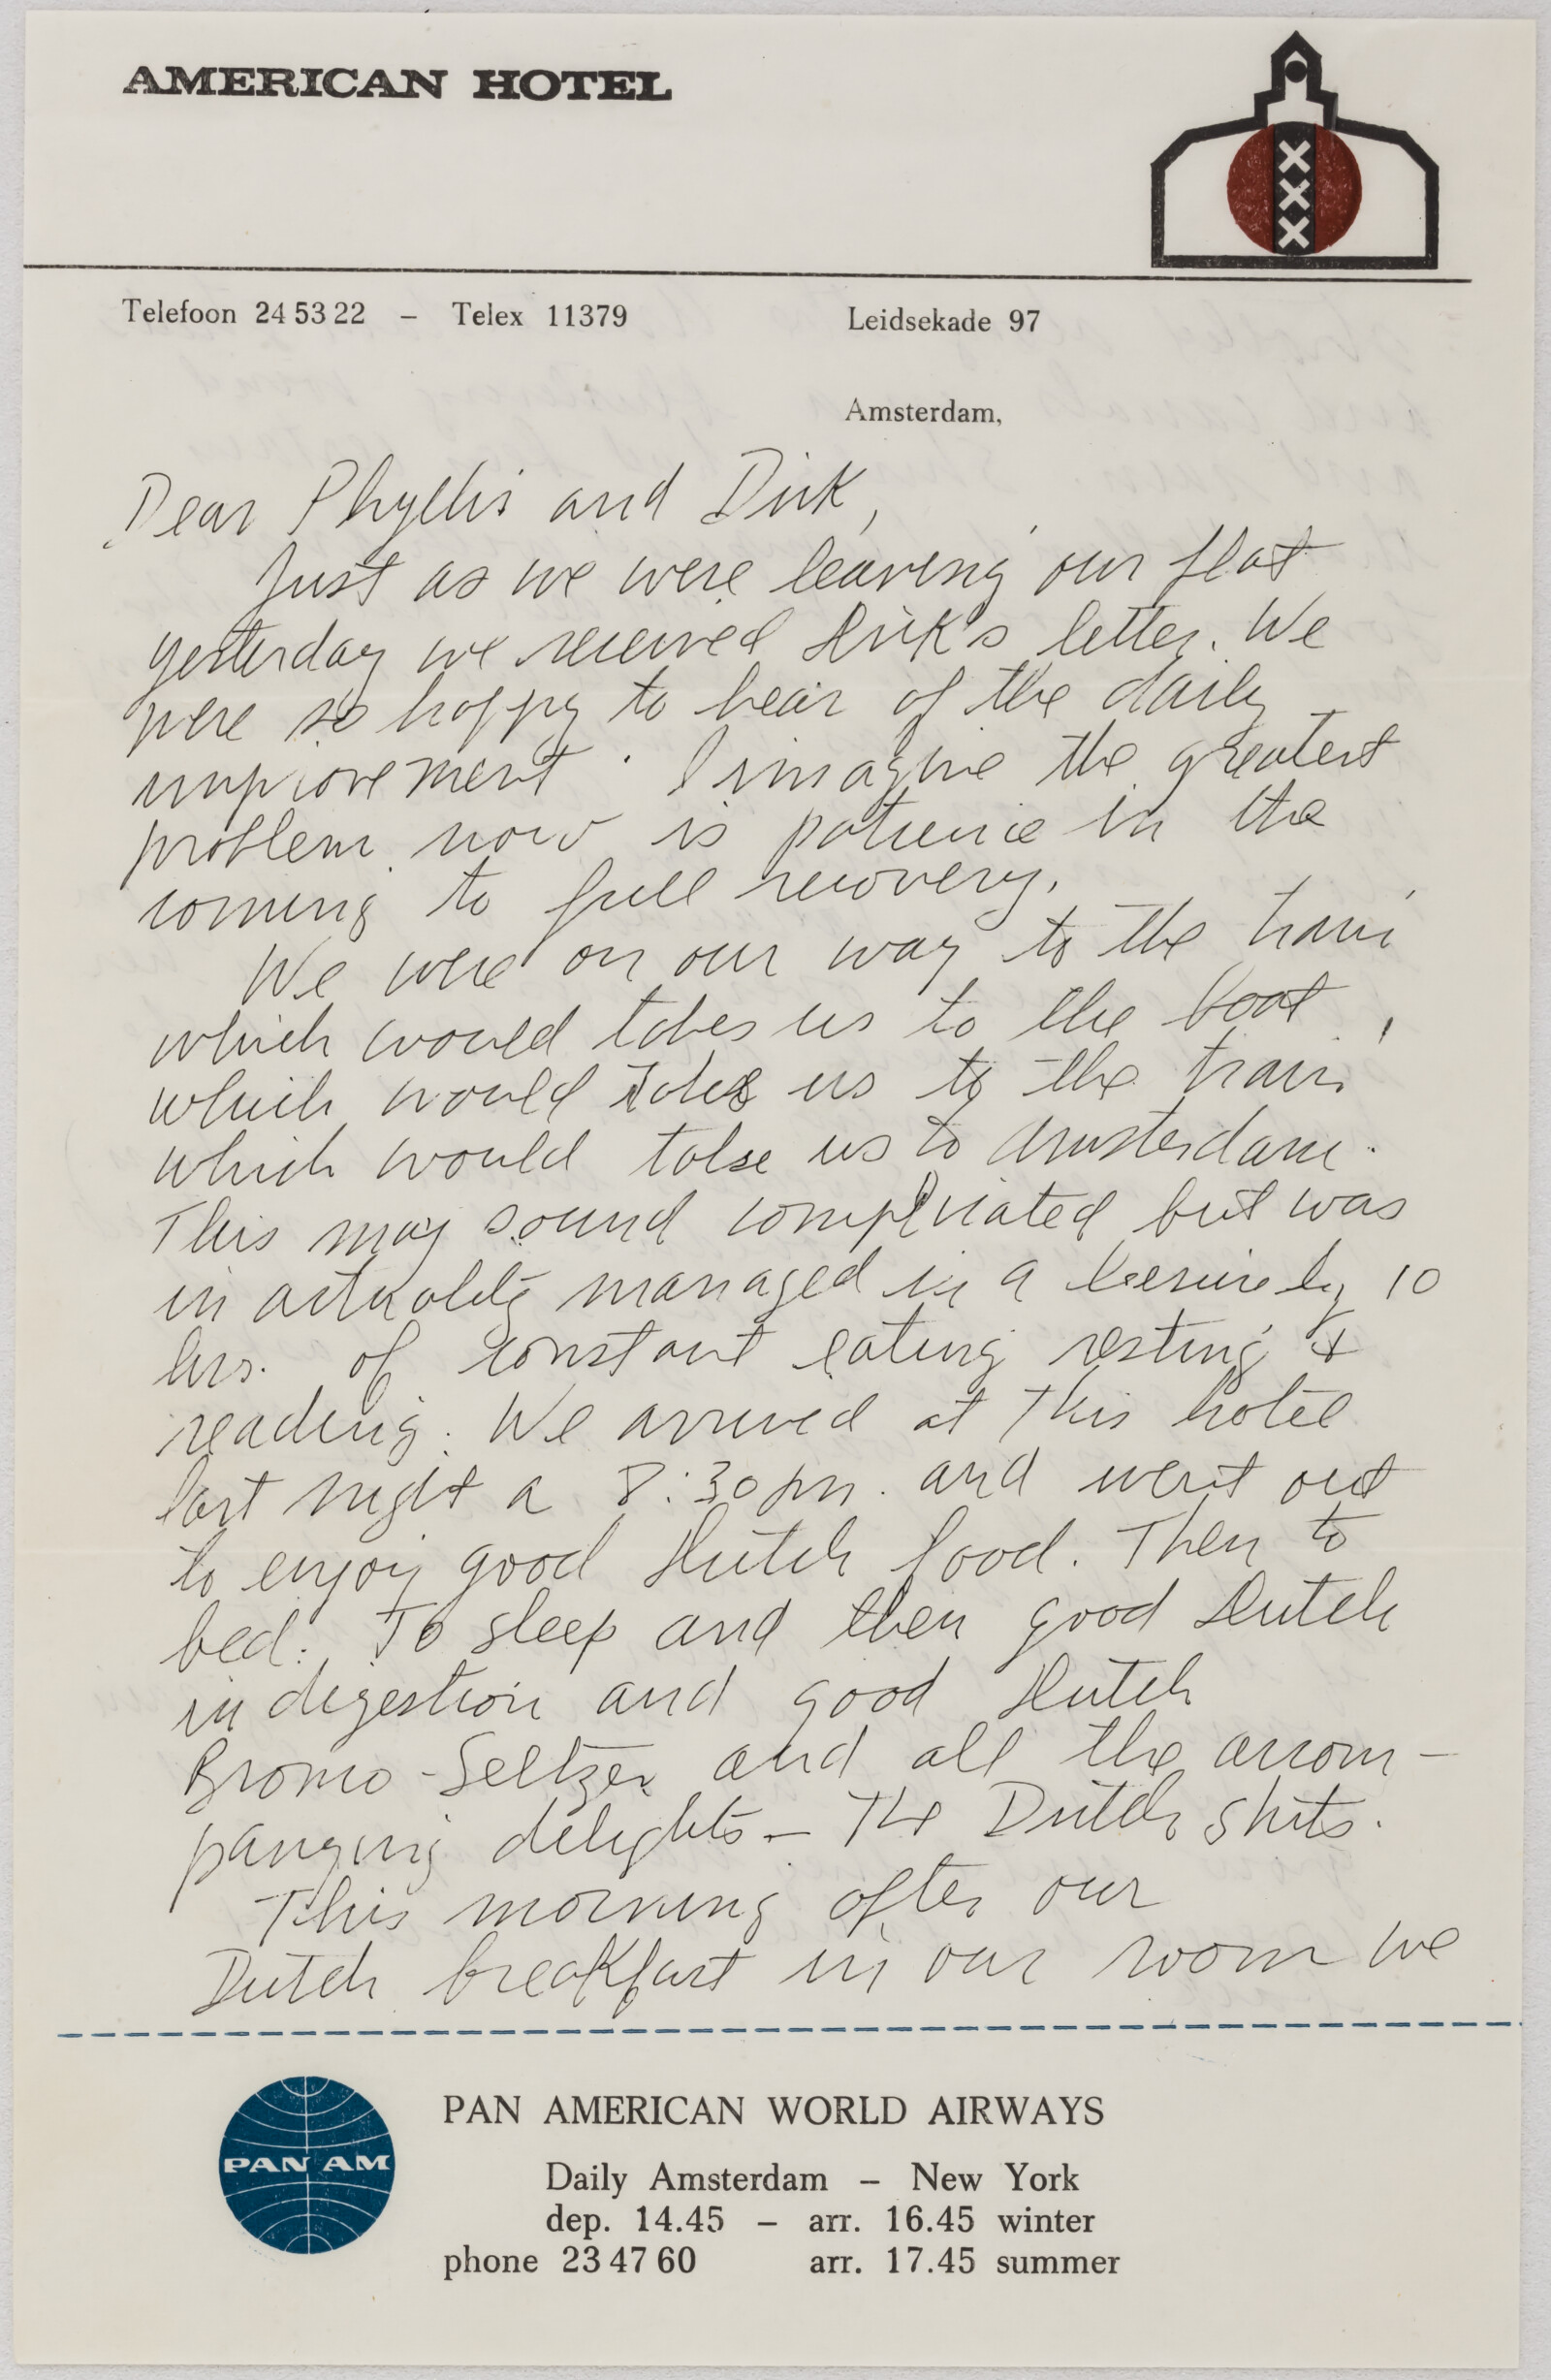 AMERICAN HOTEL
XXX
Telefoon 24 53 22 – Telex 11379
Leidsekade 97
Amsterdam,
Dear Phyllis and Dirk,
Just as we were leaving our flat
yesterday we received Dirk's letter. We
were so happy to hear of the daily
improvement. I imagine the greatest
problem now is patience in the
coming to full recovery.
We were on our way to the train
which would takes us to the boat,
which would take us to the train
which would take us to Amsterdam.
This may sound complicated but was
in actuality managed in a leesurely 10
hrs. of constant eating resting &
reading. We arrived at this hotel
last night a 8:30 pm. and went out
to enjoy good Dutch food. Then to
bed. To sleep and then good Dutch
indigestion and good Dutch
Bromo-Seltzer and all the accom-
panying delights – The Dutch shits.
This morning after our
Dutch breakfast in our room we
PAN AM
PAN AMERICAN WORLD AIRWAYS
Daily Amsterdam – New York
dep. 14.45 – arr. 16.45 winter
phone 23 47 60 arr. 17.45 summer